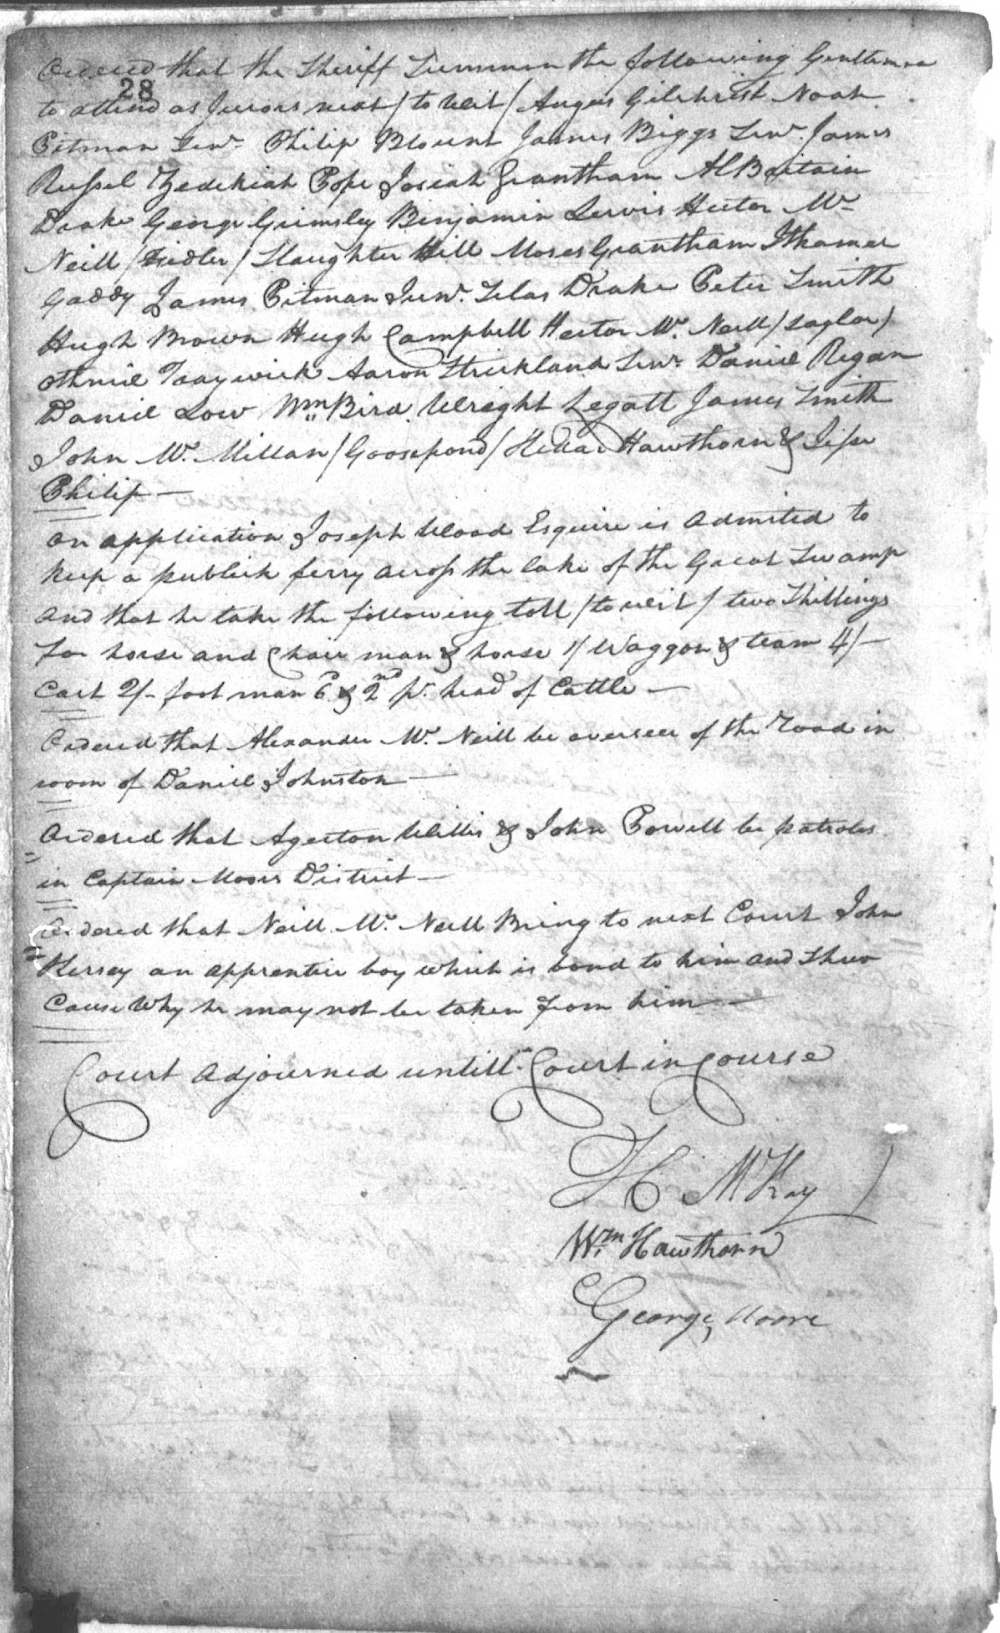 Ordered that the Sheriff Summon the following Gentlemen
28
to attend as Jurors next / to wit / Angus Gilchrist Noah
Pitman Senr. Philip Blount James Biggs Senr James
Russel Zedekiah Pope Josiah Grantham Al Britain
Drake George Grimsley Benjamin Lewis Hector Mc
Neill / Fidler / Slaughter Hill Moses Grantham Ithamer
Gaddy James Pitman Junr. Silas Drake Peter Smith
Hugh Brown Hugh Campbell Hector Mc. Neill / Saylor /
Othniel Traywick Aaron Strickland Senr. Daniel Regan
Daniel Low Wm Bird Wright Legatt James Smith
John Mc. Millan / Goosepond / Hawthorn & Jesse
Philip —
On application Joseph Wood Esquire is Admited to
keep a publick ferry across the lake of the Great Swamp
and that he take the following toll / to wit / two Shillings
For horse and Chair man & horse 1/ Waggon & team 4/-
Cart 2/- foot man 6 & 2 pr. head of Cattle —
Ordered that Alexander Mc. Neill be overseer of the road in
room of Daniel Johnston —
Ordered that Agerton Willis & John Powell be patroles
in Captain Moses District —
Ordered that Neill Mc. Neill Bring to next Court John
Kersey an apprentice boy which is bond to him and Shew
Cause Why he may not be taken from him —
Court Adjourned untill Court in Course
H McKay
Wm Hawthorn
George Moore